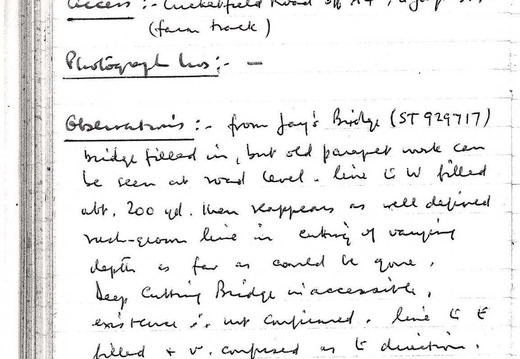 Access :- Cricketfield Road off A4,
(farm track)
Photograph Nos :- —
Observations :- from Jay's Bridge (ST 929717)
bridge filled in, but old parapet work can
be seen at road level. line to W filled
abt. 200 yd. then reappears as well defined
much-grown line in cutting of varying
depth as far as could be gone.
Deep Cutting Bridge inaccessible,
existence is not confirmed. line to E
filled + v. confused as to direction.